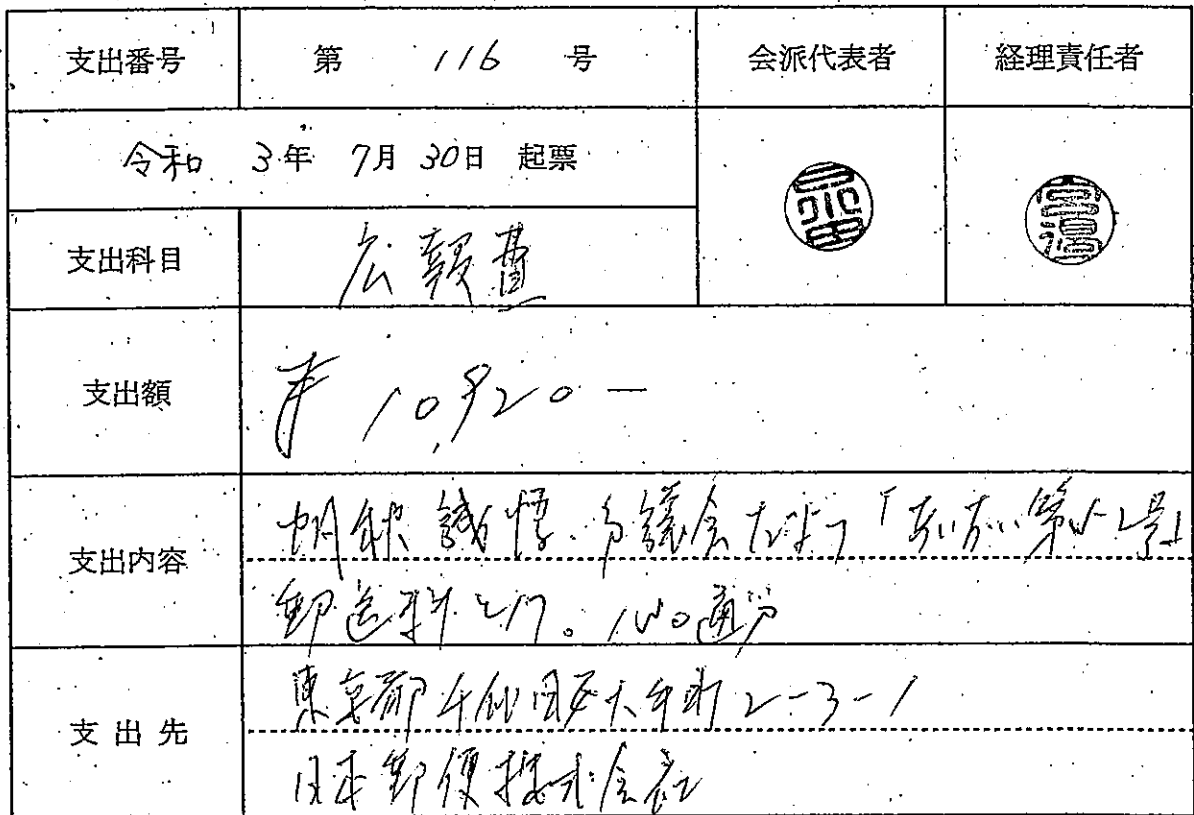 支出番号 第 116 号 会派代表者 経理責任者
令和 3年 7月 30日 起票
支出科目 広報費
支出額 ¥10,920-
支出内容 市議会だより「 号」
郵送料として。 通分
支出先 東京都千代田区大手町2-3-1
日本郵便株式会社